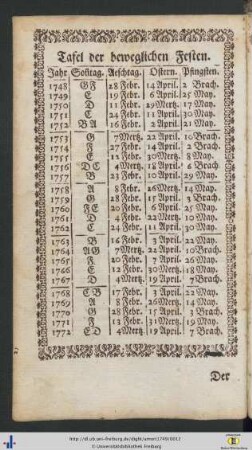 Tafel der beweglichen Festen.
Jahr Soñtag. Aeschtag. Ostern. Pfingsten.
1748 GF 28 Febr. 14 April. 2 Brach.
1749 E 19 Febr. 6 April. 25 May.
1750 D 11 Febr. 29 Mertz. 17 May.
1751 C 24 Febr. 11 April. 30 May.
1752 BA 16 Febr. 2 April. 21 May.
1753 G 7 Mertz. 22 April. 10 Brach.
1754 F 27 Febr. 14 April. 2 Brach.
1755 E 12 Febr. 30 Mertz. 18 May.
1756 DC 3 Mertz. 18 April. 6 Brach.
1757 B 23 Febr. 10 April. 29 May.
1758 A 8 Febr. 26 Mertz. 14 May.
1759 G 28 Febr. 15 April. 3 Brach.
1760 FE 20 Febr. 6 April. 25 May.
1761 D 4 Febr. 22 Mertz. 10 May.
1762 C 24 Febr. 11 April. 30 May.
1763 B 16 Febr. 3 April. 22 May.
1764 AG 7 Mertz. 22 April. 10 Brach.
1765 F 20 Febr. 7 April. 26 May.
1766 E 12 Febr. 30 Mertz. 18 May.
1767 D 4 Mertz. 19 April. 7 Brach.
1768 CB 17 Febr. 3 April. 22 May.
1769 A 8 Febr. 26 Mertz. 14 May.
1770 G 28 Febr. 15 April. 3 Brach.
1771 F 13 Febr. 31 Mertz. 19 May.
1772 ED 4 Mertz. 19 April. 7 Brach.
Der
http://dl.ub.uni-freiburg.de/diglit/sumer1749/0013
© Universitätsbibliothek Freiburg